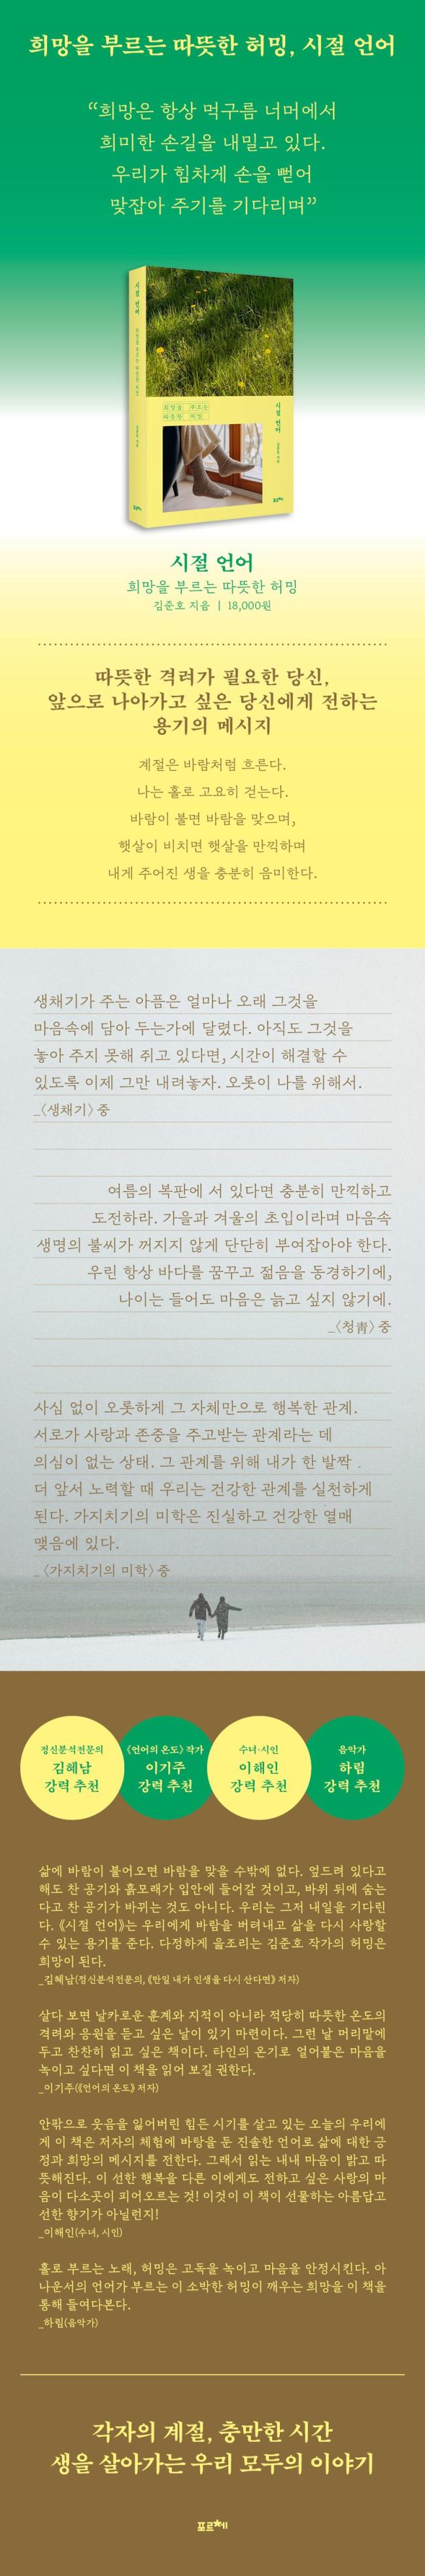 희망을 부르는 따뜻한 허밍, 시절 언어
“희망은 항상 먹구름 너머에서
희미한 손길을 내밀고 있다.
우리가 힘차게 손을 뻗어
맞잡아 주기를 기다리며”
시절 언어
희망을 부르는 따뜻한 허밍
희망을 부르는
따뜻한 허밍
시절 언어
시절 언어
희망을 부르는 따뜻한 허밍
김준호 지음 | 18,000원
따뜻한 격려가 필요한 당신,
앞으로 나아가고 싶은 당신에게 전하는
용기의 메시지
계절은 바람처럼 흐른다.
나는 홀로 고요히 걷는다.
바람이 불면 바람을 맞으며,
햇살이 비치면 햇살을 만끽하며
내게 주어진 생을 충분히 음미한다.
생채기가 주는 아픔은 얼마나 오래 그것을
마음속에 담아 두는가에 달렸다. 아직도 그것을
놓아 주지 못해 쥐고 있다면, 시간이 해결할 수
있도록 이제 그만 내려놓자. 오롯이 나를 위해서.
_〈생채기〉 중
여름의 복판에 서 있다면 충분히 만끽하고
도전하라. 가을과 겨울의 초입이라며 마음속
생명의 불씨가 꺼지지 않게 단단히 부여잡아야 한다.
우린 항상 바다를 꿈꾸고 젊음을 동경하기에,
나이는 들어도 마음은 늙고 싶지 않기에.
_〈청靑〉 중
사심 없이 오롯하게 그 자체만으로 행복한 관계.
서로가 사랑과 존중을 주고받는 관계라는 데
의심이 없는 상태. 그 관계를 위해 내가 한 발짝
더 앞서 노력할 때 우리는 건강한 관계를 실천하게
된다. 가지치기의 미학은 진실하고 건강한 열매
맺음에 있다.
_〈가지치기의 미학〉 중
정신분석전문의
김혜남
강력 추천
《언어의 온도》 작가
이기주
강력 추천
수녀·시인
이해인
강력 추천
음악가
하림
강력 추천
삶에 바람이 불어오면 바람을 맞을 수밖에 없다. 엎드려 있다고
해도 찬 공기와 흙모래가 입안에 들어갈 것이고, 바위 뒤에 숨는
다고 찬 공기가 바뀌는 것도 아니다. 우리는 그저 내일을 기다린
다. 《시절 언어》는 우리에게 바람을 버텨내고 삶을 다시 사랑할
수 있는 용기를 준다. 다정하게 읊조리는 김준호 작가의 허밍은
희망이 된다.
_김혜남(정신분석전문의, 《만일 내가 인생을 다시 산다면》 저자)
살다 보면 날카로운 훈계와 지적이 아니라 적당히 따뜻한 온도의
격려와 응원을 듣고 싶은 날이 있기 마련이다. 그런 날 머리맡에
두고 찬찬히 읽고 싶은 책이다. 타인의 온기로 얼어붙은 마음을
녹이고 싶다면 이 책을 읽어 보길 권한다.
_이기주(《언어의 온도》 저자)
안팎으로 웃음을 잃어버린 힘든 시기를 살고 있는 오늘의 우리에
게 이 책은 저자의 체험에 바탕을 둔 진솔한 언어로 삶에 대한 긍
정과 희망의 메시지를 전한다. 그래서 읽는 내내 마음이 밝고 따
뜻해진다. 이 선한 행복을 다른 이에게도 전하고 싶은 사랑의 마
음이 다소곳이 피어오르는 것! 이것이 이 책이 선물하는 아름답고
선한 향기가 아닐런지!
_이해인(수녀, 시인)
홀로 부르는 노래, 허밍은 고독을 녹이고 마음을 안정시킨다. 아
나운서의 언어가 부르는 이 소박한 허밍이 깨우는 희망을 이 책을
통해 들여다본다.
_하림(음악가)
각자의 계절, 충만한 시간
생을 살아가는 우리 모두의 이야기
포르체